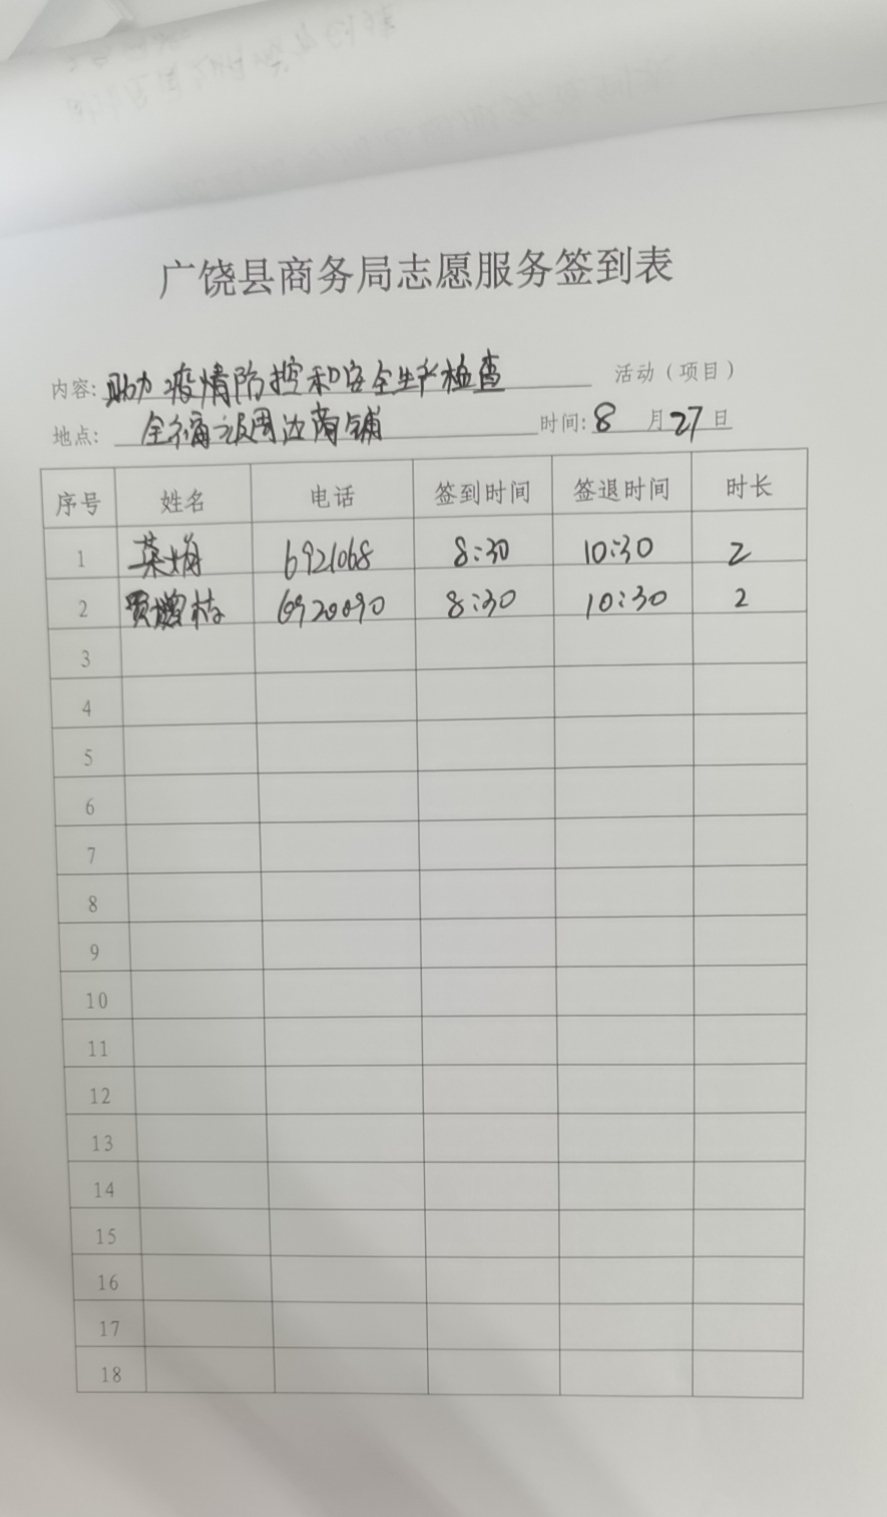 广饶县商务局志愿服务签到表
内容: 助力疫情防控和安全生产检查 活动（项目）
地点: 全福元周边商铺 时间: 8月27日
序号 姓名 电话 签到时间 签退时间 时长
1 6921068 8:30 10:30 2
2 6920090 8:30 10:30 2
3
4
5
6
7
8
9
10
11
12
13
14
15
16
17
18